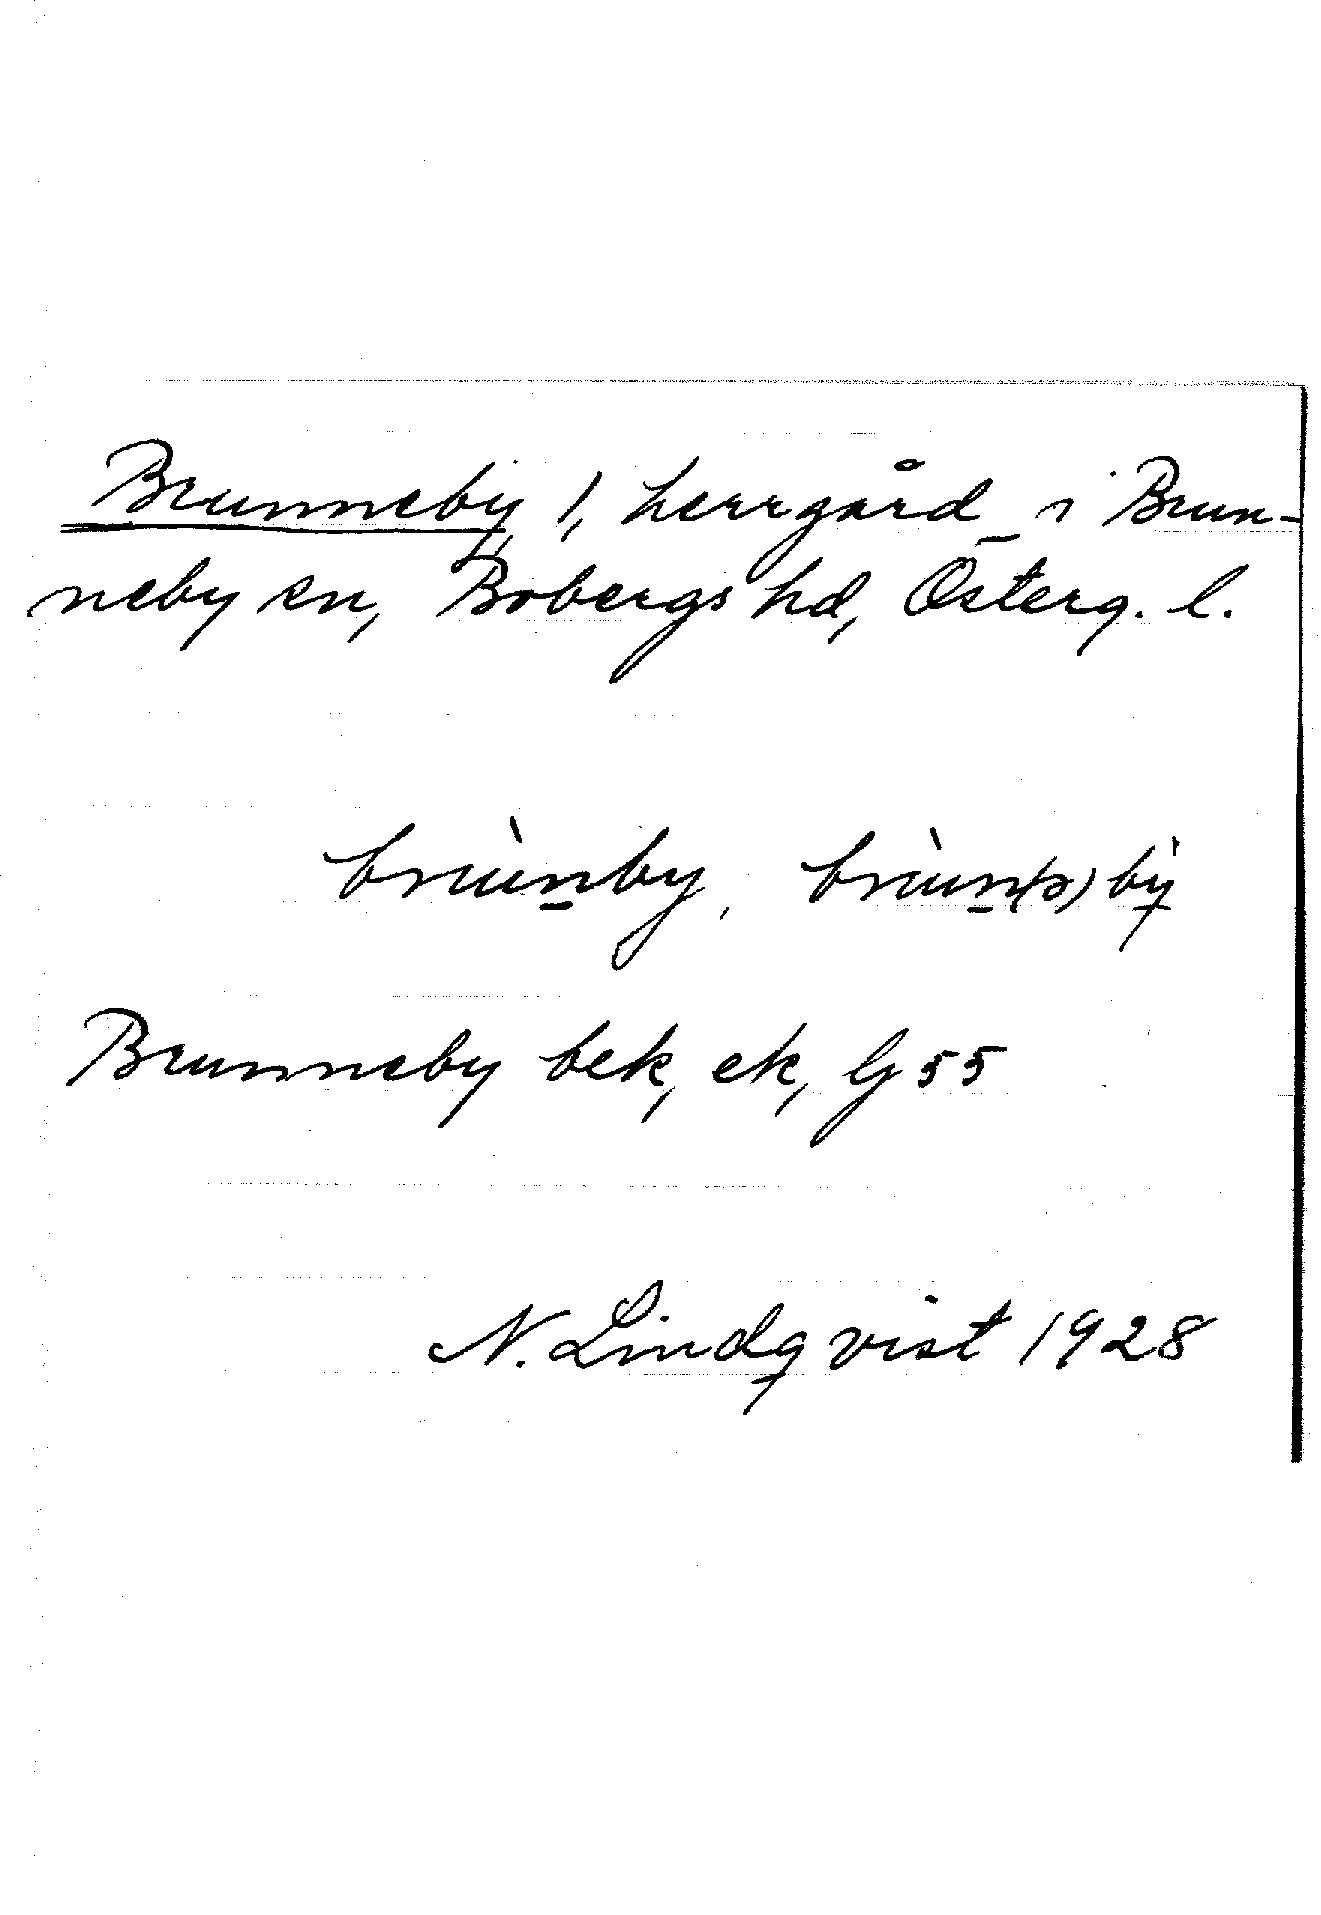 Brunneby 1, herrgård i Brun-
neby sn, Bobergs hd, Österg. l.
brùnby, brùn(ə)by
Brunneby bek, ek, Gj 55
N. Lindqvist 1928